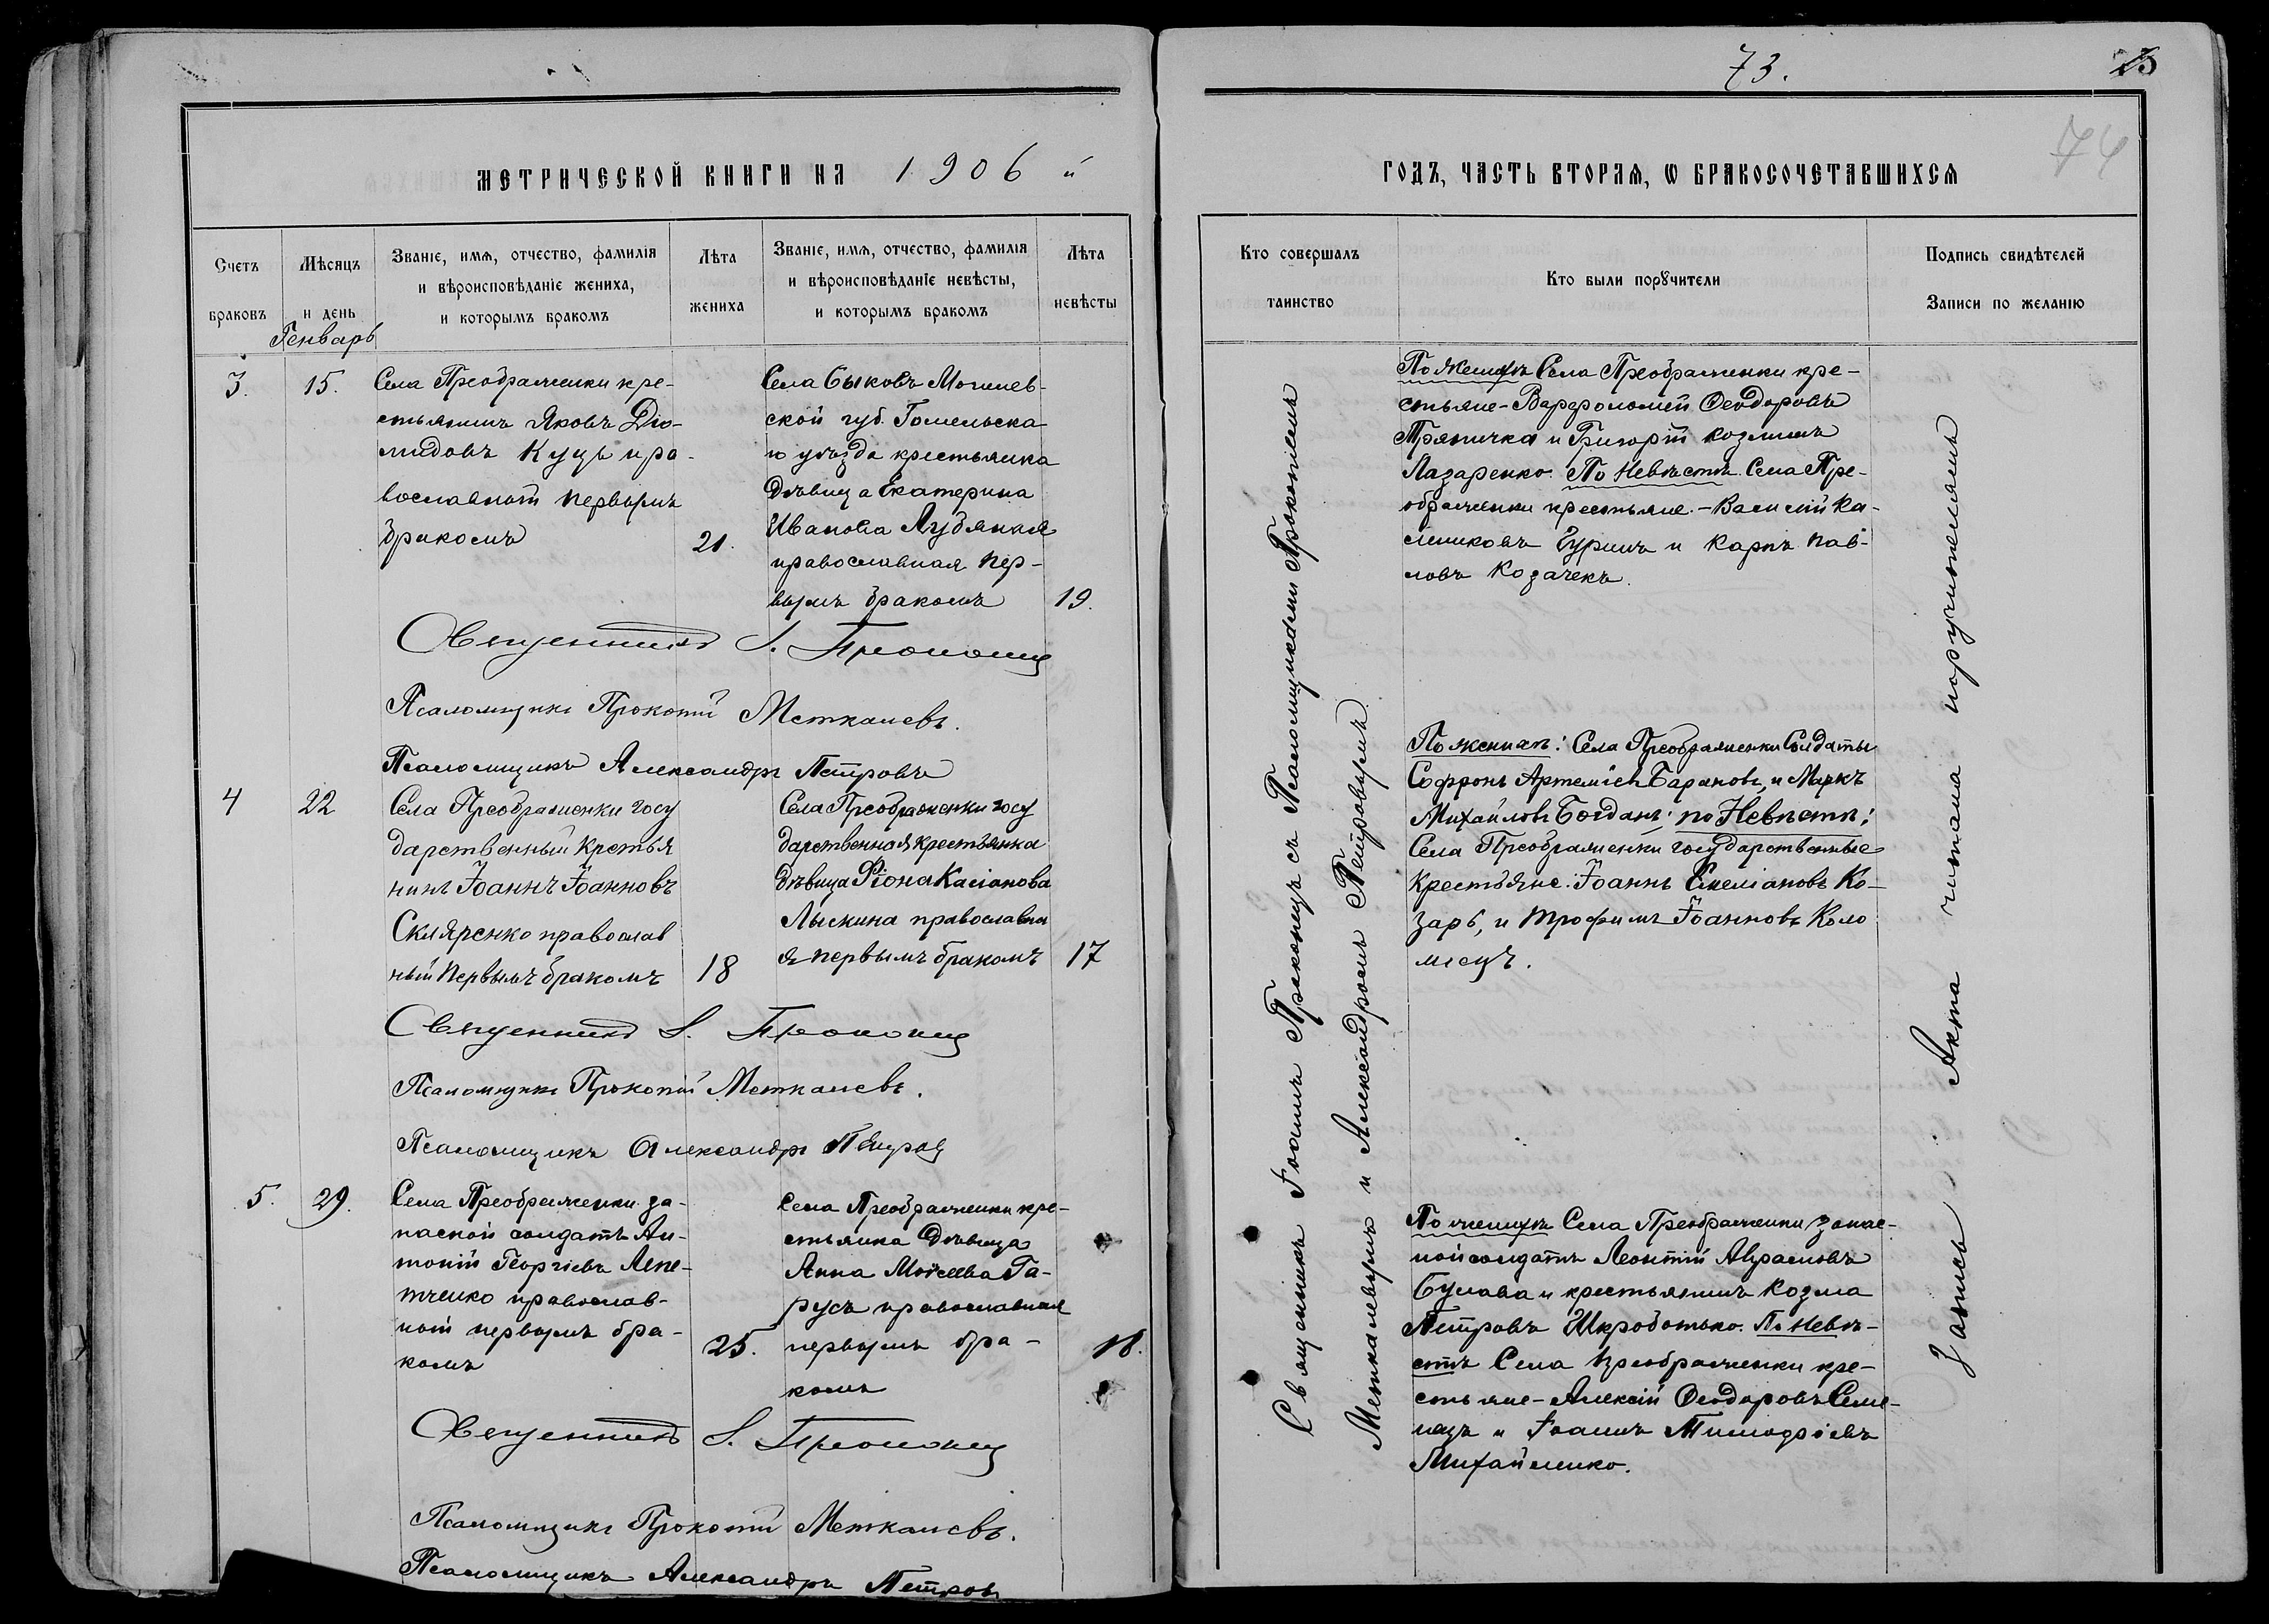 73.
74
МЕТРИЧЕСКОЙ КНИГИ НА 1906 й
ГОДЪ, ЧАСТЬ ВТОРАЯ, Ѡ БРАКОСОЧЕТАВШИХСЯ
Счетъ
браковъ
Мѣсяцъ
и день
Генварь
Званіе, имя, отчество, фамилія
и вѣроисповѣданіе жениха,
и которымъ бракомъ
Лѣта
жениха
Званіе, имя, отчество, фамилія
и вѣроисповѣданіе невѣсты,
и которымъ бракомъ
Лѣта
невѣсты
Кто совершалъ
таинство
Кто были порꙋчители
Подпись свидѣтелей
Записи по желанію
3.
15.
Села Преображенки кре-
стьянинъ Яковъ Діо-
мидовъ Куцъ пра-
вославный первымъ
бракомъ
21.
Села Быковъ Могилев-
ской губ. Гомельска
го уѣзда крестьянка
Дѣвица Екатерина
Иванова Лубянкая
православная пер-
вымъ бракомъ
19.
Священникъ І. Прокопецъ
Псаломщикъ Прокопій Меткалевъ.
Псаломщикъ Александръ Петровъ
4
22
Села Преображенки госу
дарственный крестья
нинъ Іоаннъ Іоанновъ
Скляренко православ
ный первымъ бракомъ
18
Села Преображенки госу
дарственная крестьянка
дѣвица Касіанова
Лыскина православна
я первымъ бракомъ
17
Священникъ І. Прокопецъ
Псаломщикъ Прокопій Меткалевъ.
Псаломщикъ Александръ Петровъ
5.
29.
Села Преображенки за-
паской солдатъ Ан-
тоній Георгіевъ Лепе-
тченко православ-
ный первымъ бра-
комъ
25.
Села Преображенки кре-
стьянка Дѣвица
Анна Моѵсеева Га-
русъ православная
первымъ бра-
комъ
18.
Священникъ І. Прокопецъ
Псаломщикъ Прокопій Меткалевъ.
Псаломщикъ Александръ Петровъ
Священникъ Іоаннъ Прокопецъ съ Псаломщиками Прокопіемъ
Меткалевымъ и Александромъ Петровымъ
По Женихѣ Села Преображенки кре-
стьяне - Варфоломей Ѳеодоровъ
Тряпичка и Григорій Козминъ
Лазаренко. По Невѣстѣ Села Пре-
ображенки крестьяне - Василій Ка-
линиковъ Гуринъ и Карпъ Пав-
ловъ Козачекъ.
По женихѣ: Села Преображенки Солдаты
Софронъ Артеміевъ Барановъ, и Маркъ
Михайловъ Богданъ; по Невѣстѣ;
Села Преображенки государственные
крестьяне. Іоаннъ Емеліановъ Ко-
зарь, и Трофимъ Іоанновъ Коло
міецъ.
По женихѣ Села Преображенки запас-
ной солдатъ Леонтій Авраамовъ
Булава и крестьянинъ Козма
Петровъ Шкроботько. По Невѣ-
стѣ Села Преображенки кре-
стьяне - Алексій Ѳеодоровъ Семе-
нецъ и Іоаннъ Тимоѳіевъ
Михайленко.
Запись Акта читана поручителямъ